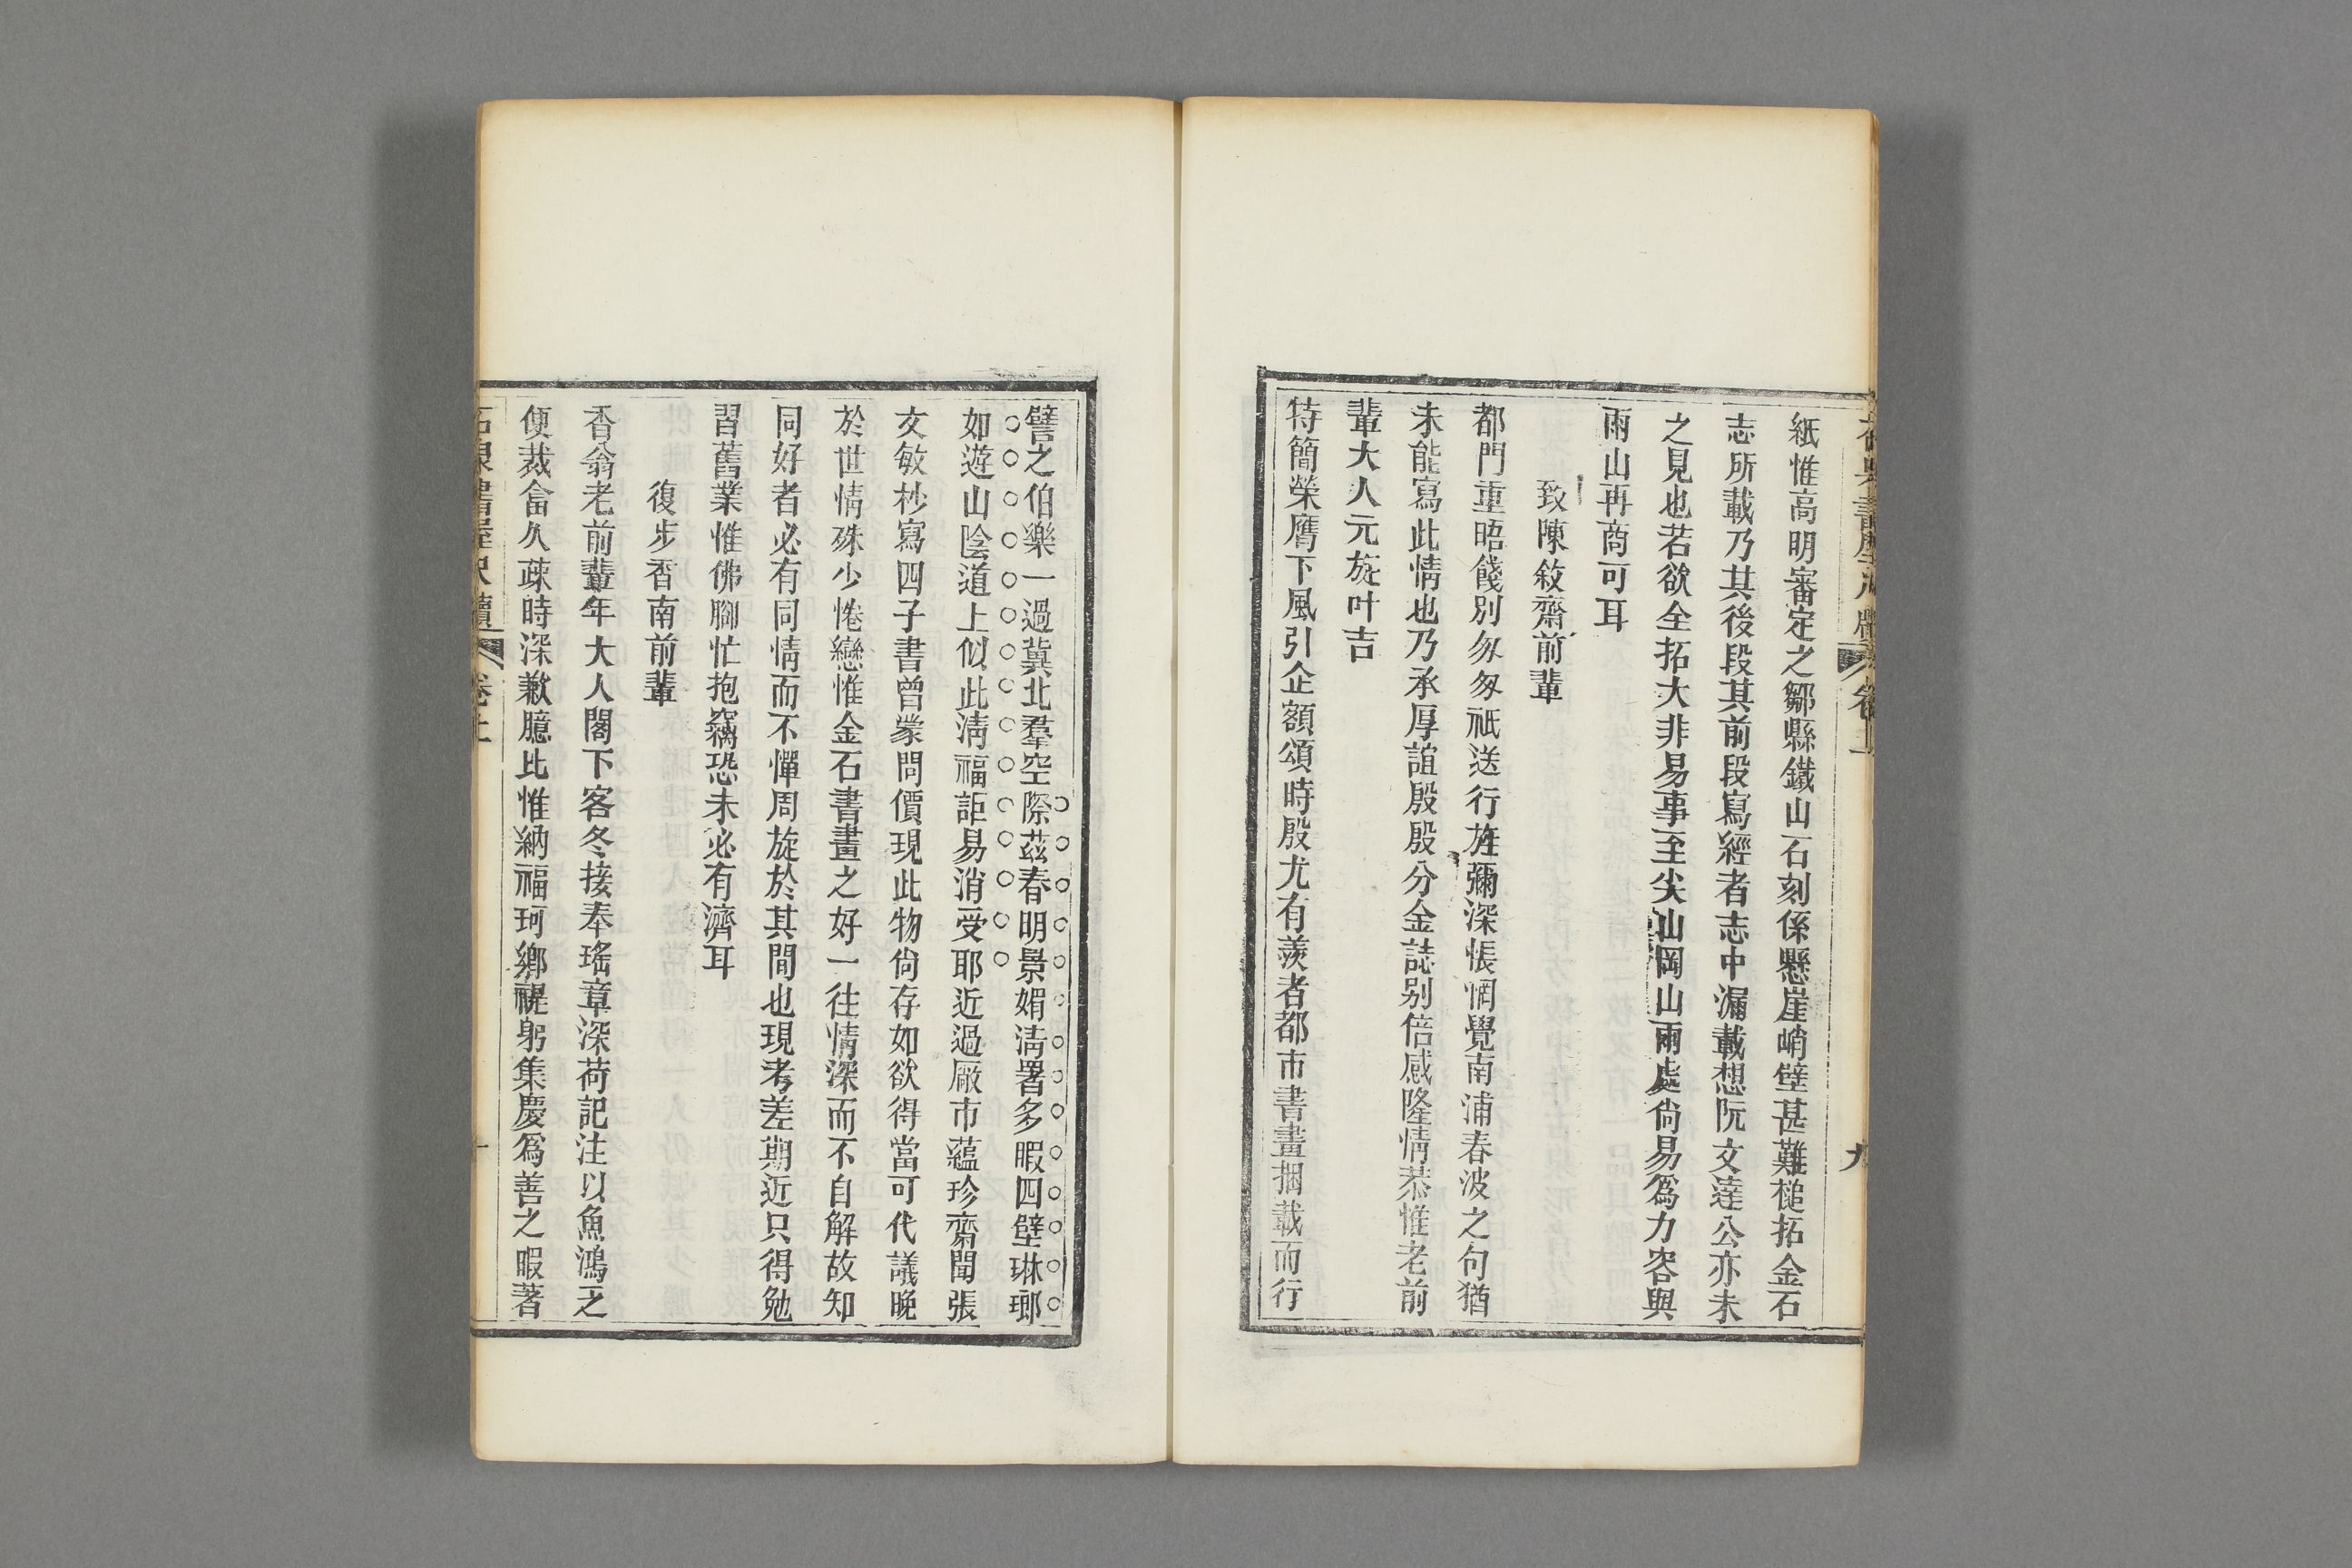 紙惟高明審定之鄒縣鐵山石刻係懸崖峭壁甚難槌拓金石
志所載乃其後段其前段寫經者志中漏載想阮文達公亦未
之見也若欲全拓大非易事至尖山岡山兩處尙易爲力容與
雨山再商可耳
致陳敘齋前輩
都門重晤餞別匆匆祇送行旌彌深悵惘覺南浦春波之句猶
未能寫此情也乃承厚誼殷殷分金誌別倍感隆情恭惟老前
輩大人元旋叶吉
特簡榮膺下風引企額頌時殷尤有羨者都市書畫捆載而行
譬之伯樂一過冀北羣空際茲春明景媚淸署多暇四壁琳瑯
如遊山陰道上似此淸福詎易消受耶近過厰市蘊珍齋聞張
文敏杪寫四子書曾蒙問價現此物尙存如欲得當可代議晚
於世情殊少惓戀惟金石書畫之好一往情深而不自解故知
同好者必有同情而不憚周旋於其間也現考差期近只得勉
習舊業惟佛腳忙抱竊恐未必有濟耳
復步香南前輩
香翁老前輩年大人閣下客冬接奉瑤章深荷記注以魚鴻之
便裁畣久疎時深歉臆比惟納福珂鄉禔躬集慶爲善之暇著
石泉書屋尺牘 卷上